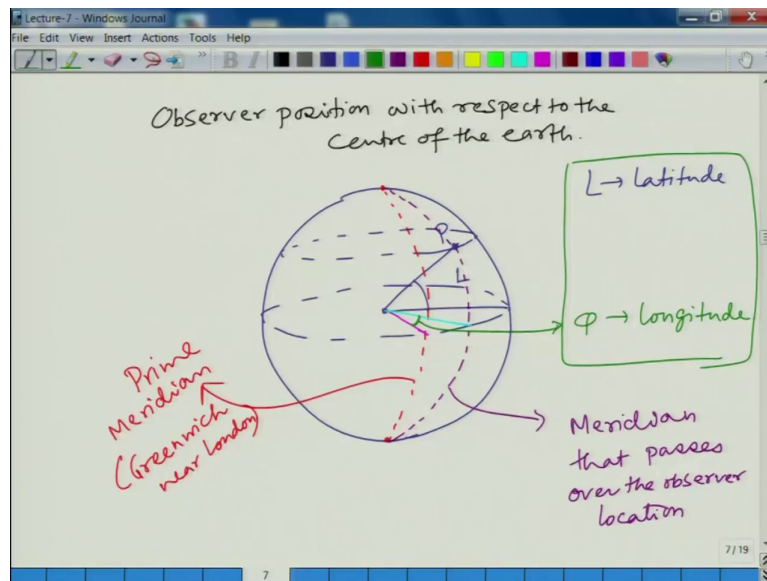 Lecture-7 - Windows Journal
File Edit View Insert Actions Tools Help
B I
Observer position with respect to the
Centre of the earth.
L → Latitude
P
L
φ → Longitude
Prime
Meridian
(Greenwich
near London)
Meridian
that passes
over the observer
location
7/19
7